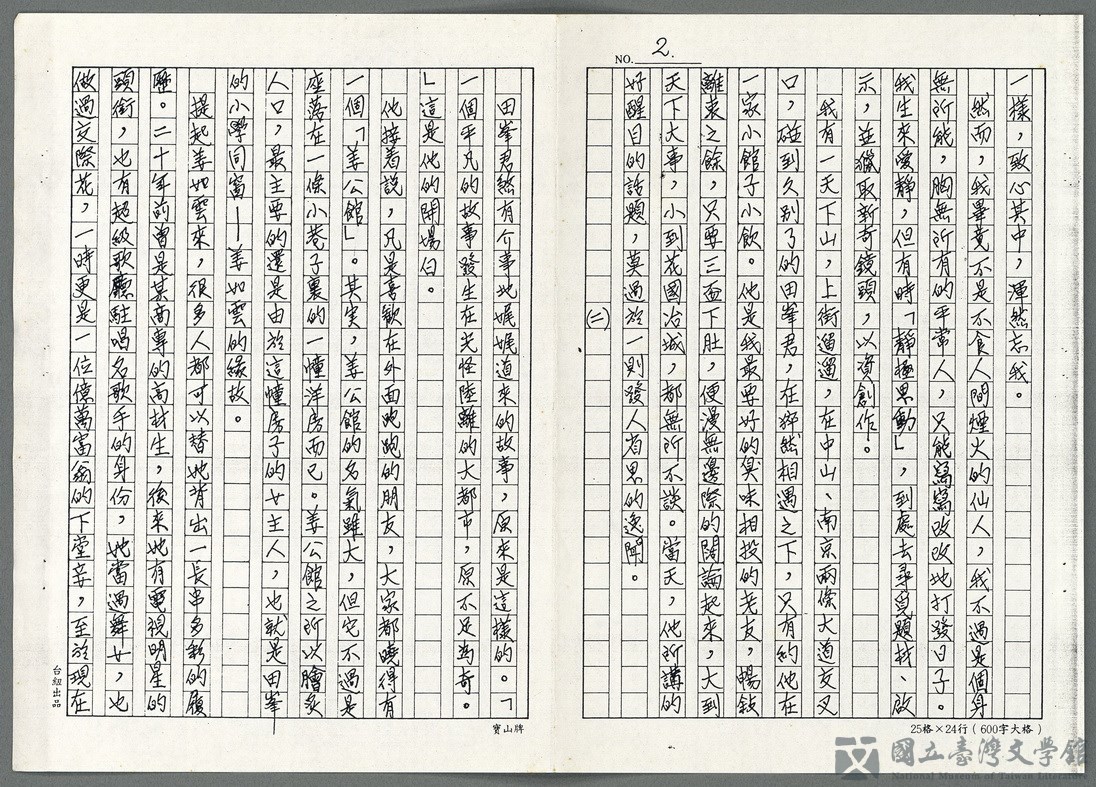 NO. 2.
一樣，致心其中，渾然忘我。
然而，我畢竟不是不食人間煙火的仙人，我不過是個身
無所能，胸無所有的平常人，只能寫寫改改地打發日子。
我生來愛靜，但有時「靜極思動」，到處去尋覓題材、啟
示，並獵取新奇鏡頭，以資創作。
我有一天下山，上街遛遛，在中山、南京兩條大道交叉
口，碰到久別了的田峯君，在猝然相遇之下，只有約他在
一家小館子小飲。他是我最要好的臭味相投的老友，暢敍
離衷之餘，只要三盃下肚，便漫無邊際的闊論起來，大到
天下大事，小到花國冶城，都無所不談。當天，他所講的
好醒目的話題，莫過於一則發人省思的逸聞。
(二)
田峯君煞有介事地娓娓道來的故事，原來是這樣的。「
一個平凡的故事發生在光怪陸離的大都市，原不足為奇。
」這是他的開場白。
他接着說，凡是喜歡在外面跑跑的朋友，大家都曉得有
一個「姜公館」。其实，姜公館的名氣雖大，但它不過是
座落在一條小巷子裏的一幢洋房而已。姜公館之所以膾炙
人口，最主要的還是由於這幢房子的女主人，也就是田峯
的小學同窗——姜如雲的緣故。
提起姜如雲來，很多人都可以替她背出一長串多彩的履
歷。二十年前曾是某商專的高材生，後來她有電視明星的
頭銜，也有超級歌廳駐唱名歌手的身份，她當過舞女，也
做過交際花，一時更是一位億萬富翁的下堂妾，至於現在
25格×24行（600字大格）
寶山牌
台紐出品
國立臺灣文學館
National Museum of Taiwan Literature